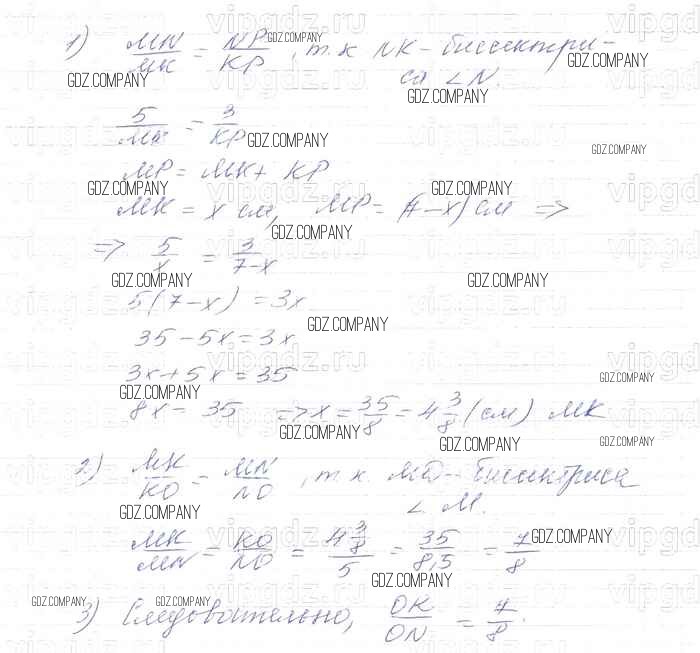 1) MN/MK = NP/KP, т.к NK - биссектри-
са ∠N.
5/MK = 3/KP
MP = MK + KP
MK = x см, MP = (7-x) см ⇒
⇒ 5/x = 3/7-x
5(7-x) = 3x
35-5x=3x
3x+5x=35
8x = 35 => x = 35/8 = 4 3/8 (см) MK
2) MK/KO = MN/NO, т.к. MO - биссектриса
∠ M.
MK/MN = KO/NO = 4 3/8 / 5 = 35/8,5 = 7/8
3) Следовательно, OK/ON = 7/8.
GDZ.COMPANY
vipgdz.ru